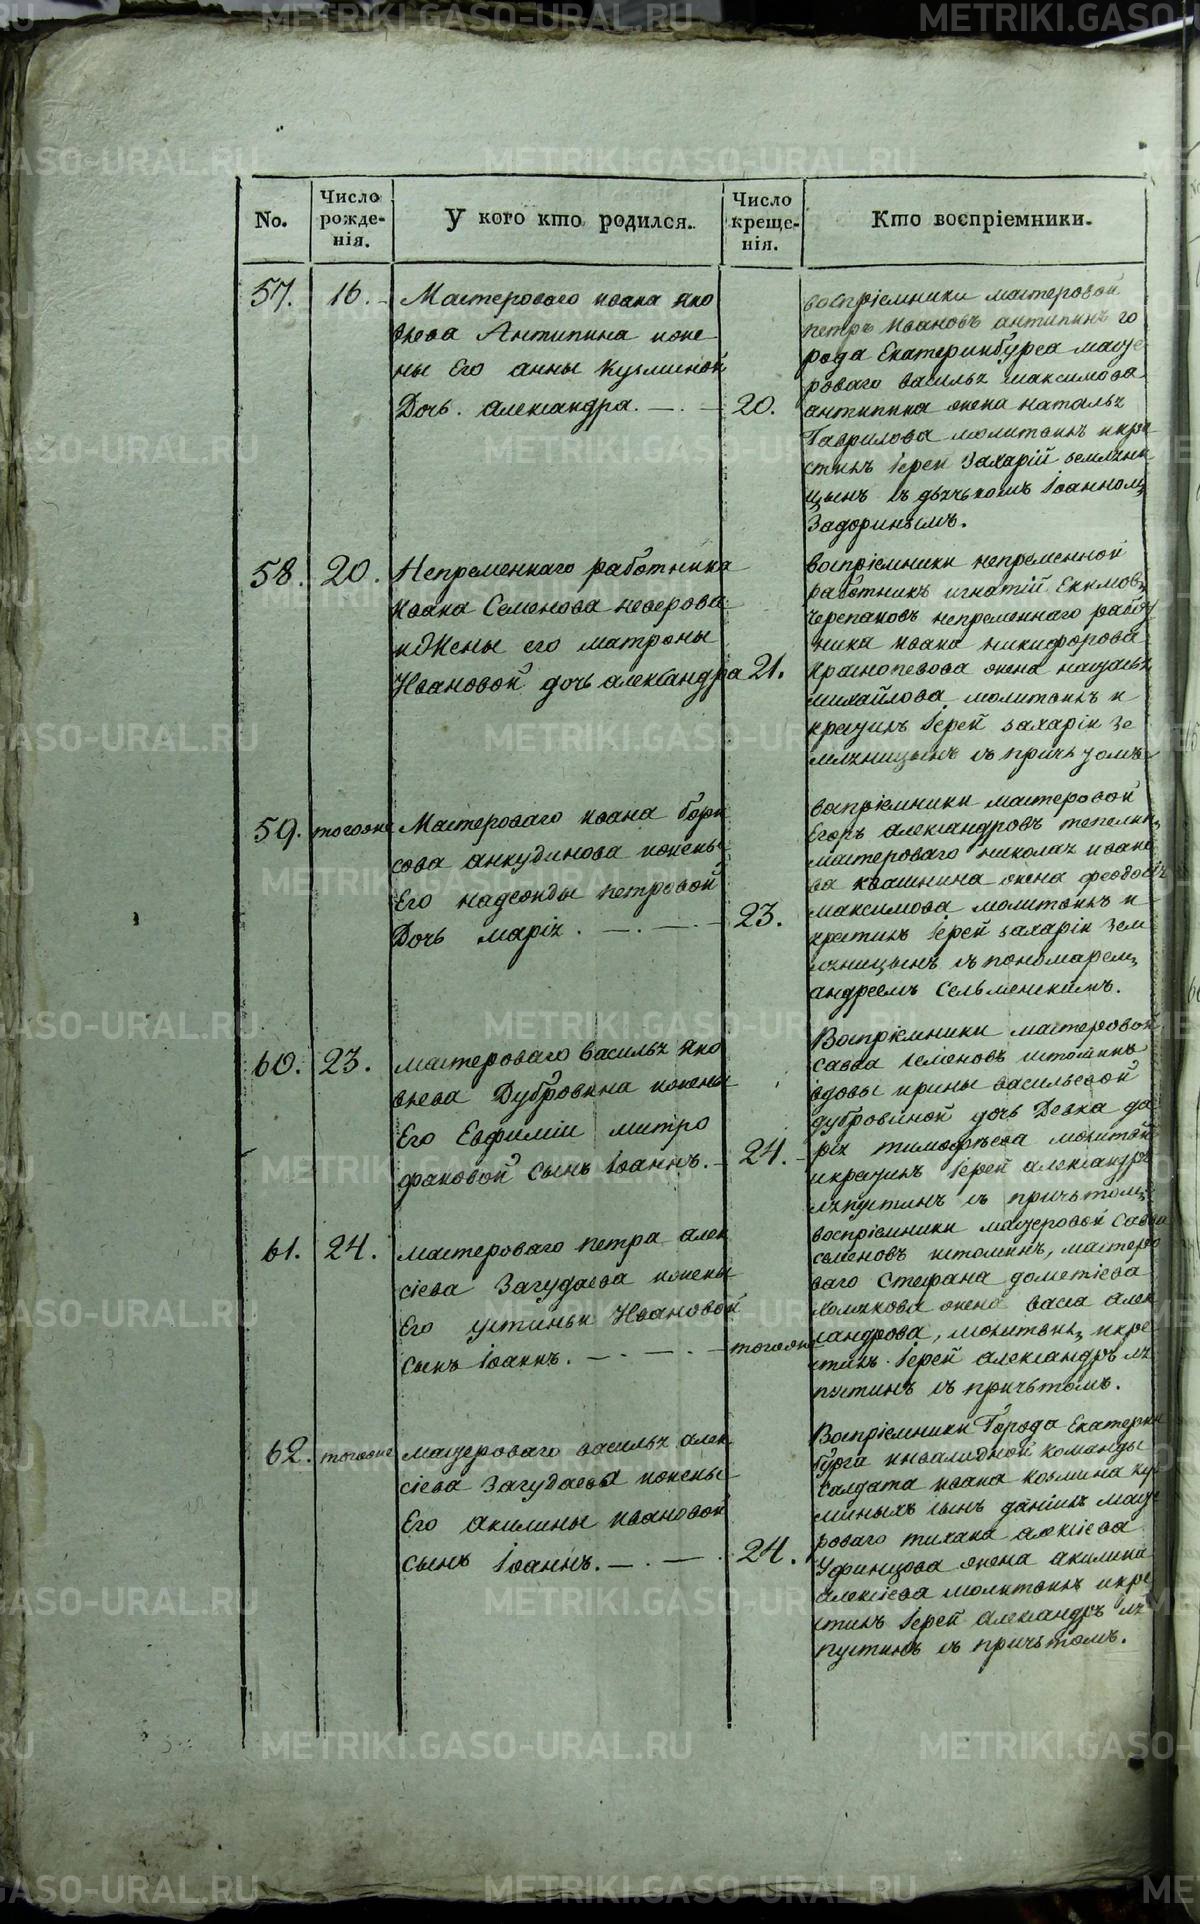 METRIKI.GASO-URAL.RU
No.
Число рожде-нія.
У кого кто родился.
Число креще-нія.
Кто воспріемники.
57.
16.
Мастероваго ивана яко
влева Антипина ижже
ны Его анны Кузминой
Дочь. александра.
20.
воспріемники мастеровой
петръ ивановъ антипинъ го
рода Екатеринбурга масте
роваго василья максимова
антипина жена наталья
Гаврилова молитвилъ икре
стилъ Іерей Захарій земляни
цынъ съ дьячькомъ Іоанномъ
Задоринымъ.
58.
20.
Непременнаго работника
ивана Семенова неверова
иЖены его матроны
Ивановой дочь александра
21.
воспріемники непременной
работникъ игнатій Екимовъ
черепановъ непременнаго работ
ника ивана никифорова
краснопевова жена наталья
михайлова молитвилъ и
крестилъ Іерей захарій Зе
мляницынъ съ причьтомъ
59.
тогожже
Мастероваго ивана бори
сова анкудинова ижены
Его надежды петровой
Дочь марія.
23.
воспріемники мастеровой
Егоръ александровъ
мастероваго николая ивано
ва квашнина жена феодосія
максимова молитвилъ и
крестилъ Іерей захарій Зем
ляницынъ съ пономаремъ
андреемъ Сельменскимъ.
60.
23.
мастероваго василья яко
влева Дубровина ижены
Его Евфиміи митро
фановой сынъ Іоаннъ.
24.
Воспріемники мастеровой
савва семеновъ истоминъ
вдовы ирины васильевой
дубровиной дочь Девка да
рія тимофѣева молитвилъ
икрестилъ Іерей александръ
ляпустинъ съ причьтомъ
61.
24.
мастероваго петра алек
сіева Загудаева ижены
Его устиньи Ивановой
Сынъ Іоаннъ.
тогоже
воспріемники мастеровой Савва
семеновъ истоминъ, мастеро
ваго стефана дометіева
холмкова жена васса алек
сандрова, молитвилъ икре
стилъ Іерей александръ ля
пустинъ съ причьтомъ.
62.
тогоже
мастероваго василья алек
сіева Загудаева ижены
Его акилины ивановой
сынъ Іоаннъ.
24.
Воспріемники Города Екатерин
бурга инвалидной команды
Салдата ивана козмина
сынъ даніилъ масте
роваго тихана алексіева
Уфинцова жена акилина
алексіева молитвилъ икре
стилъ Іерей Александръ ля
пустинъ съ причьтомъ.